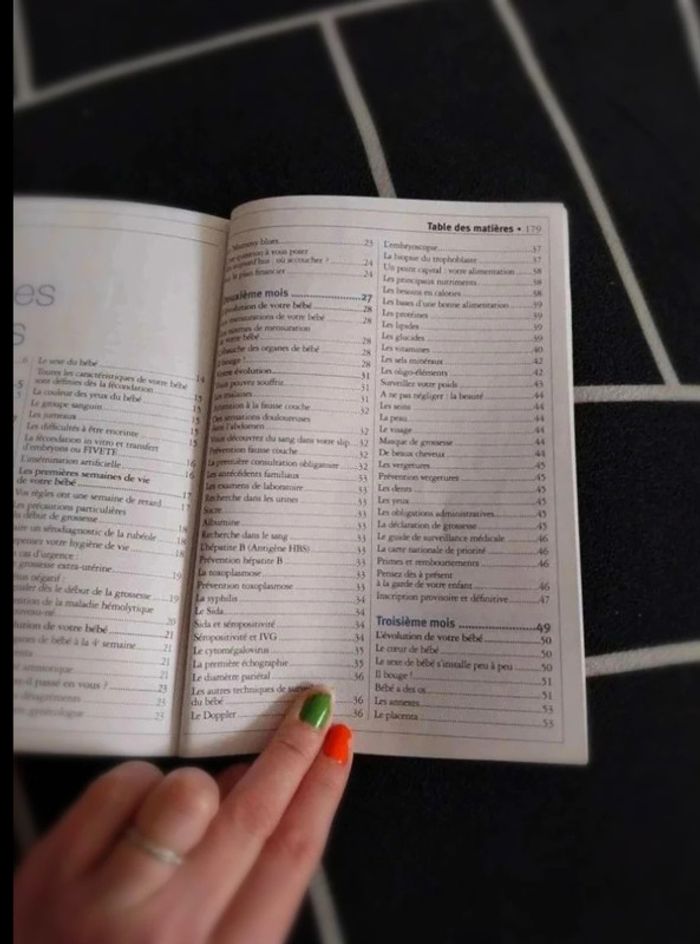 es
s
Le sexe du bébé
Toutes les caractéristiques de votre bébé
sont définies dès la fécondation 14
La couleur des yeux du bébé 15
Le groupe sanguin 15
Les jumeaux 15
Les difficultés à être enceinte 15
La fécondation in vitro et transfert
d'embryons ou FIVETE 15
L'insémination artificielle 16
Les premières semaines de vie
de votre bébé 16
Vos règles ont une semaine de retard 17
Les précautions particulières
du début de grossesse 17
un sérodiagnostic de la rubéole 18
votre hygiène de vie 18
cas d'urgence :
grossesse extra-utérine 19
négatif :
dès le début de la grossesse 19
de la maladie hémolytique
20
de votre bébé 21
de bébé à la 4e semaine 21
21
21
passé en vous ? 23
23
gynécologue 23
Table des matières • 179
Mummy blues 23
question à vous poser
aujourd'hui : où accoucher ? 24
le plan financier 24
Deuxième mois 27
L'évolution de votre bébé 28
Les mensurations de votre bébé 28
de mensuration
votre bébé 28
des organes de bébé 28
bouge ! 28
Votre évolution 31
Vous pouvez souffrir 31
Les malaises 31
Attention à la fausse couche 32
Des sensations douloureuses
dans l'abdomen 32
Vous découvrez du sang dans votre slip 32
Prévention fausse couche 32
La première consultation obligatoire 32
Les antécédents familiaux 33
Les examens de laboratoire 33
Recherche dans les urines 33
Sucre 33
Albumine 33
Recherche dans le sang 33
L'hépatite B (Antigène HBS) 33
Prévention hépatite B 33
La toxoplasmose 33
Prévention toxoplasmose 33
La syphilis 34
Le Sida 34
Sida et séropositivité 34
Séropositivité et IVG 34
Le cytomégalovirus 35
La première échographie 35
Le diamètre pariétal 36
Les autres techniques de
du bébé 36
Le Doppler 36
L'embryoscopie 37
La biopsie du trophoblaste 37
Un point capital : votre alimentation 38
Les principaux nutriments 38
Les besoins en calories 38
Les bases d'une bonne alimentation 39
Les protéines 39
Les lipides 39
Les glucides 39
Les vitamines 40
Les sels minéraux 42
Les oligo-éléments 42
Surveillez votre poids 43
A ne pas négliger : la beauté 44
Les seins 44
La peau 44
Le visage 44
Masque de grossesse 44
De beaux cheveux 44
Les vergetures 45
Prévention vergetures 45
Les dents 45
Les yeux 45
Les obligations administratives 45
La déclaration de grossesse 45
Le guide de surveillance médicale 46
La carte nationale de priorité 46
Primes et remboursements 46
Pensez dès à présent
à la garde de votre enfant 46
Inscription provisoire et définitive 47
Troisième mois 49
L'évolution de votre bébé 50
Le cœur de bébé 50
Le sexe de bébé s'installe peu à peu 50
Il bouge ! 51
Bébé a des os 51
Les annexes 53
Le placenta 53